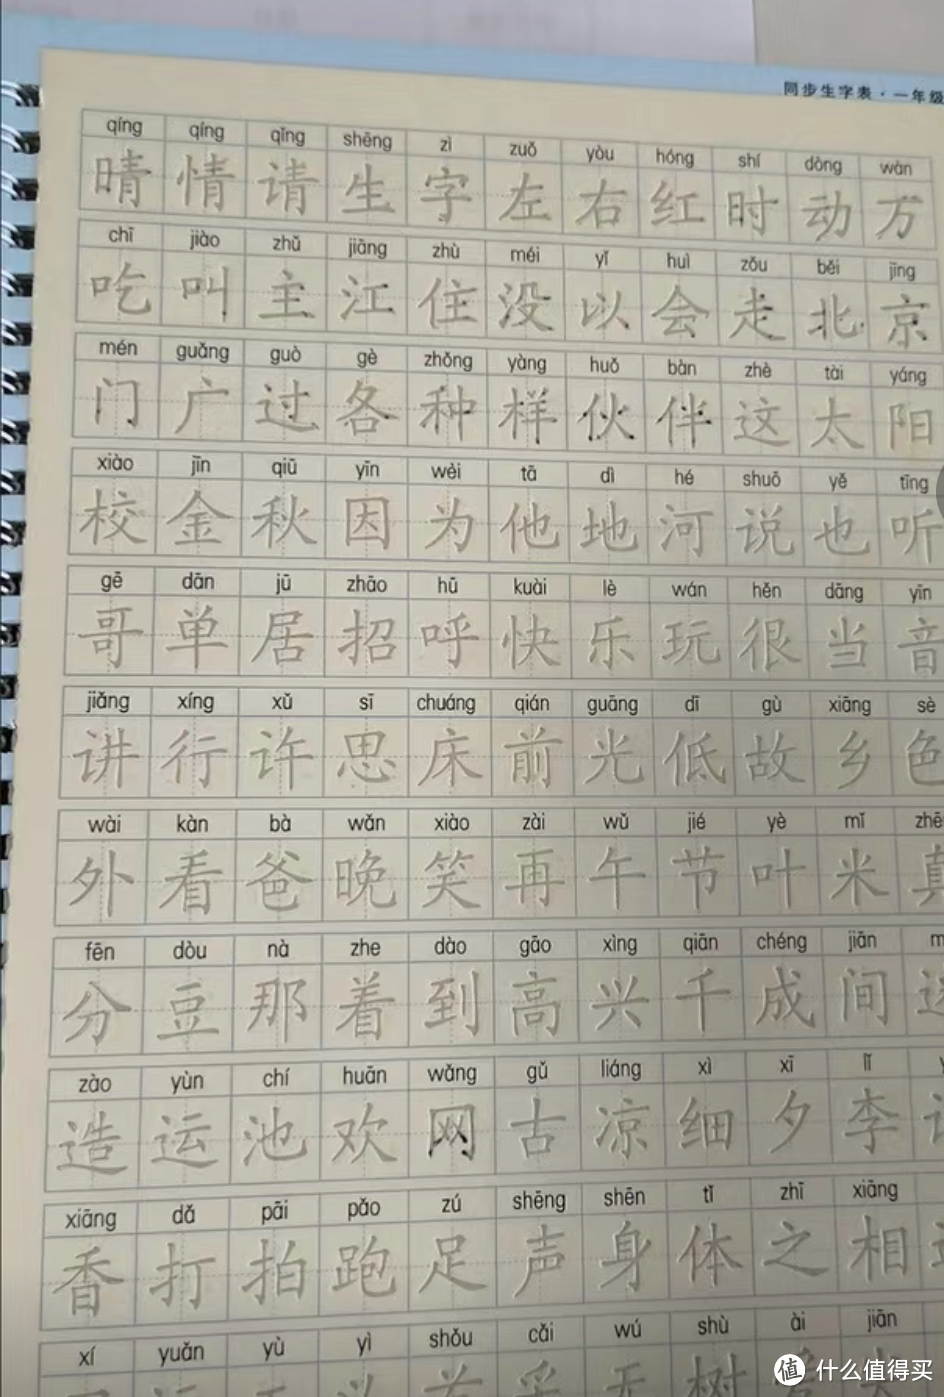 同步生字表·一年级
qíng qíng qǐng shēng zì zuǒ yòu hóng shí dòng wàn
晴 情 请 生 字 左 右 红 时 动 万
chī jiào zhǔ jiāng zhù méi yǐ huì zǒu běi jīng
吃 叫 主 江 住 没 以 会 走 北 京
mén guǎng guò gè zhǒng yàng huǒ bàn zhè tài yáng
门 广 过 各 种 样 伙 伴 这 太 阳
xiào jīn qiū yīn wèi tā dì hé shuō yě tīng
校 金 秋 因 为 他 地 河 说 也 听
gē dān jū zhāo hū kuài lè wán hěn dāng yīn
哥 单 居 招 呼 快 乐 玩 很 当 音
jiǎng xíng xǔ sī chuáng qián guāng dī gù xiāng sè
讲 行 许 思 床 前 光 低 故 乡 色
wài kàn bà wǎn xiào zài wǔ jié yè mǐ
外 看 爸 晚 笑 再 午 节 叶 米 真
fēn dòu nà zhe dào gāo xìng qiān chéng jiān
分 豆 那 着 到 高 兴 千 成 间
zào yùn chí huān wǎng gǔ liáng xì xī lǐ
造 运 池 欢 网 古 凉 细 夕 李
xiāng dǎ pāi pǎo zú shēng shēn tǐ zhī xiāng
香 打 拍 跑 足 声 身 体 之 相
xí yuǎn yù yì shǒu cǎi wú shù ài jiān
树
值 什么值得买